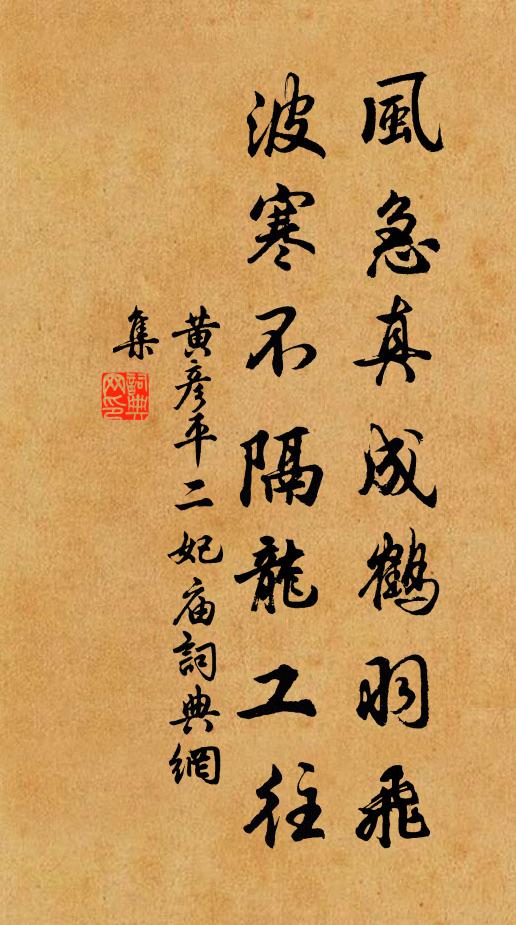 風急真成鶴羽飛
波寒不隔龍工往
黄彦平二妃庙詞典網
集
詞典网印